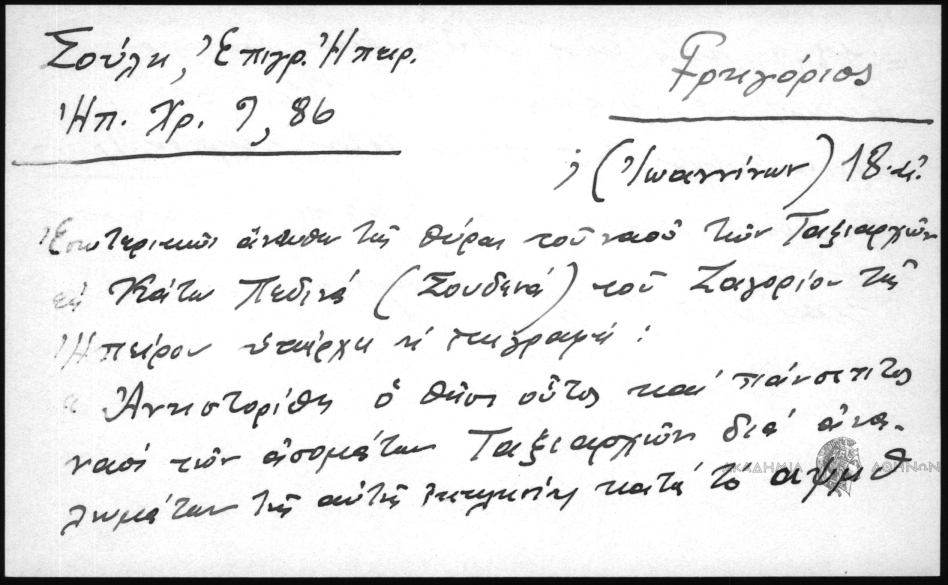 Σούλη, Ἐπιγρ. Ἠπειρ.
Ἠπ. Χρ. 9, 86
Γρηγόριος
(Ἰωαννίνων) 18 αἰ.
Ἐσωτερικῶς ἄνωθεν τῆς θύρας τοῦ ναοῦ τῶν Ταξιαρχῶν
εἰς Κάτω Πεδινά (Σουδενά) τοῦ Ζαγορίου τῆς
Ἠπείρου ὑπάρχει ἡ ἐπιγραφή :
« Ἀνηστορίθη ὁ θῆος οὗτος καί πάνσεπτος
ναός τῶν ἀσομάτων Ταξιαρχῶν διά ἀνα-
λωμάτων τῆς αὐτῆς ἐκκλησίας κατά τό αψμθ
ΑΚΑΔΗΜΙΑ ΑΘΗΝΩΝ